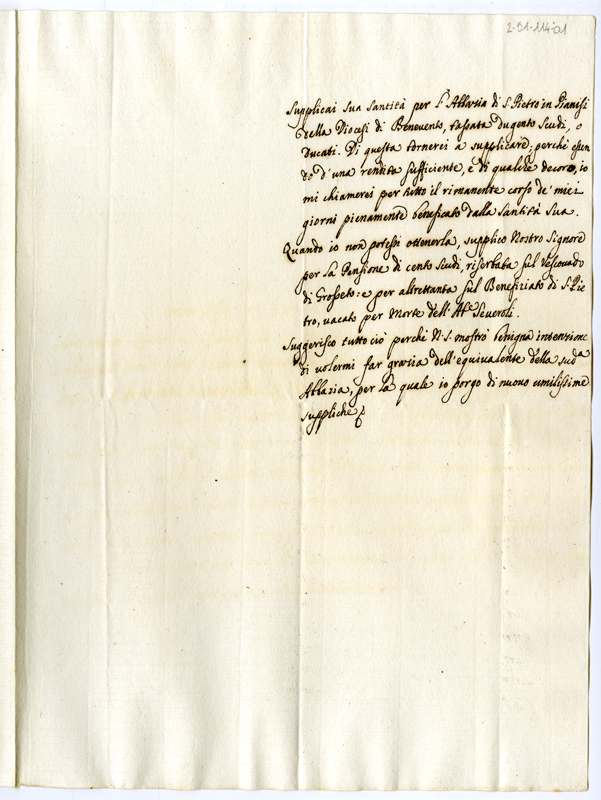 2-51-114-01
Supplicai Sua Santità per l'Abbazia di S. Pietro in Pianisi
della Diocesi di Benevento, tassata dugento Scudi, o
Ducati. Di questa tornerei a supplicare; perchè essen
do d'una rendita sufficiente, e di qualche decoro, io
mi chiamerei per tutto il rimanente corso de' miei
giorni pienamente beneficato dalla Santità Sua.
Quando io non potessi ottenerla, supplico Nostro Signore
per la Pensione di cento Scudi, riserbata sul Vescovado
di Grosseto: e per altrettanta sul Benefiziato di S. Pie
tro, vacato per Morte dell'Ab.e Severoli.
Suggerisco tutto ciò perchè N.S. mostrò benigna intenzione
di volermi far grazia dell'equivalente della sud.a
Abbazia, per la quale io porgo di nuovo umilissime
suppliche